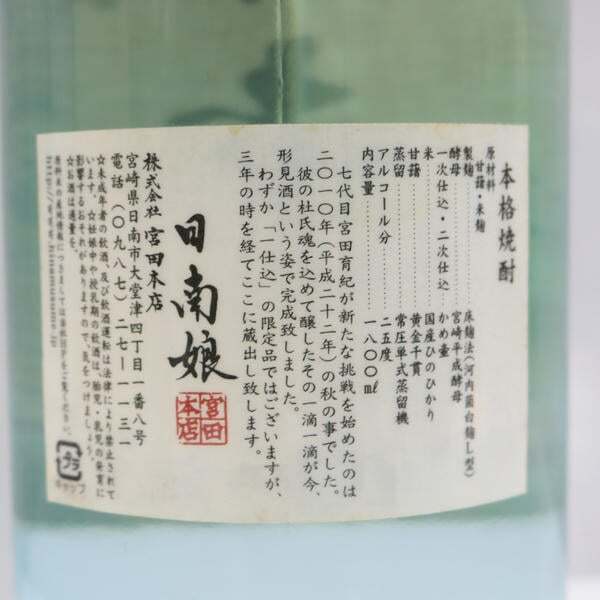 本格焼酎
原材料 甘藷・米麹
製麹 床麹法（河内菌白麹L型）
酵母 宮崎平成酵母
一次仕込・二次仕込 かめ壷
米 国産ひのひかり
甘藷 黄金千貫
蒸留 常圧単式蒸留機
アルコール分 二五度
内容量 一八〇〇ml
七代目宮田育紀が新たな挑戦を始めたのは
二〇一〇年（平成二十二年）の秋の事でした。
彼の杜氏魂を込めて醸したその一滴一滴が今、
形見酒という姿で完成致しました。
わずか「一仕込」の限定品ではございますが、
三年の時を経てここに蔵出し致します。
日南娘
宮田本店
株式会社 宮田本店
宮崎県日南市大堂津四丁目一番八号
電話（〇九八七）二七ー一一三一
☆未成年者の飲酒、及び飲酒運転は法律により禁止されて
います。☆妊娠中や授乳期の飲酒は、胎児・乳児の発育に
影響するおそれがありますので、気をつけましょう。
☆お酒は適量を。
原料米の産地情報につきましては当社HPをご覧ください。
プラ
キャップ